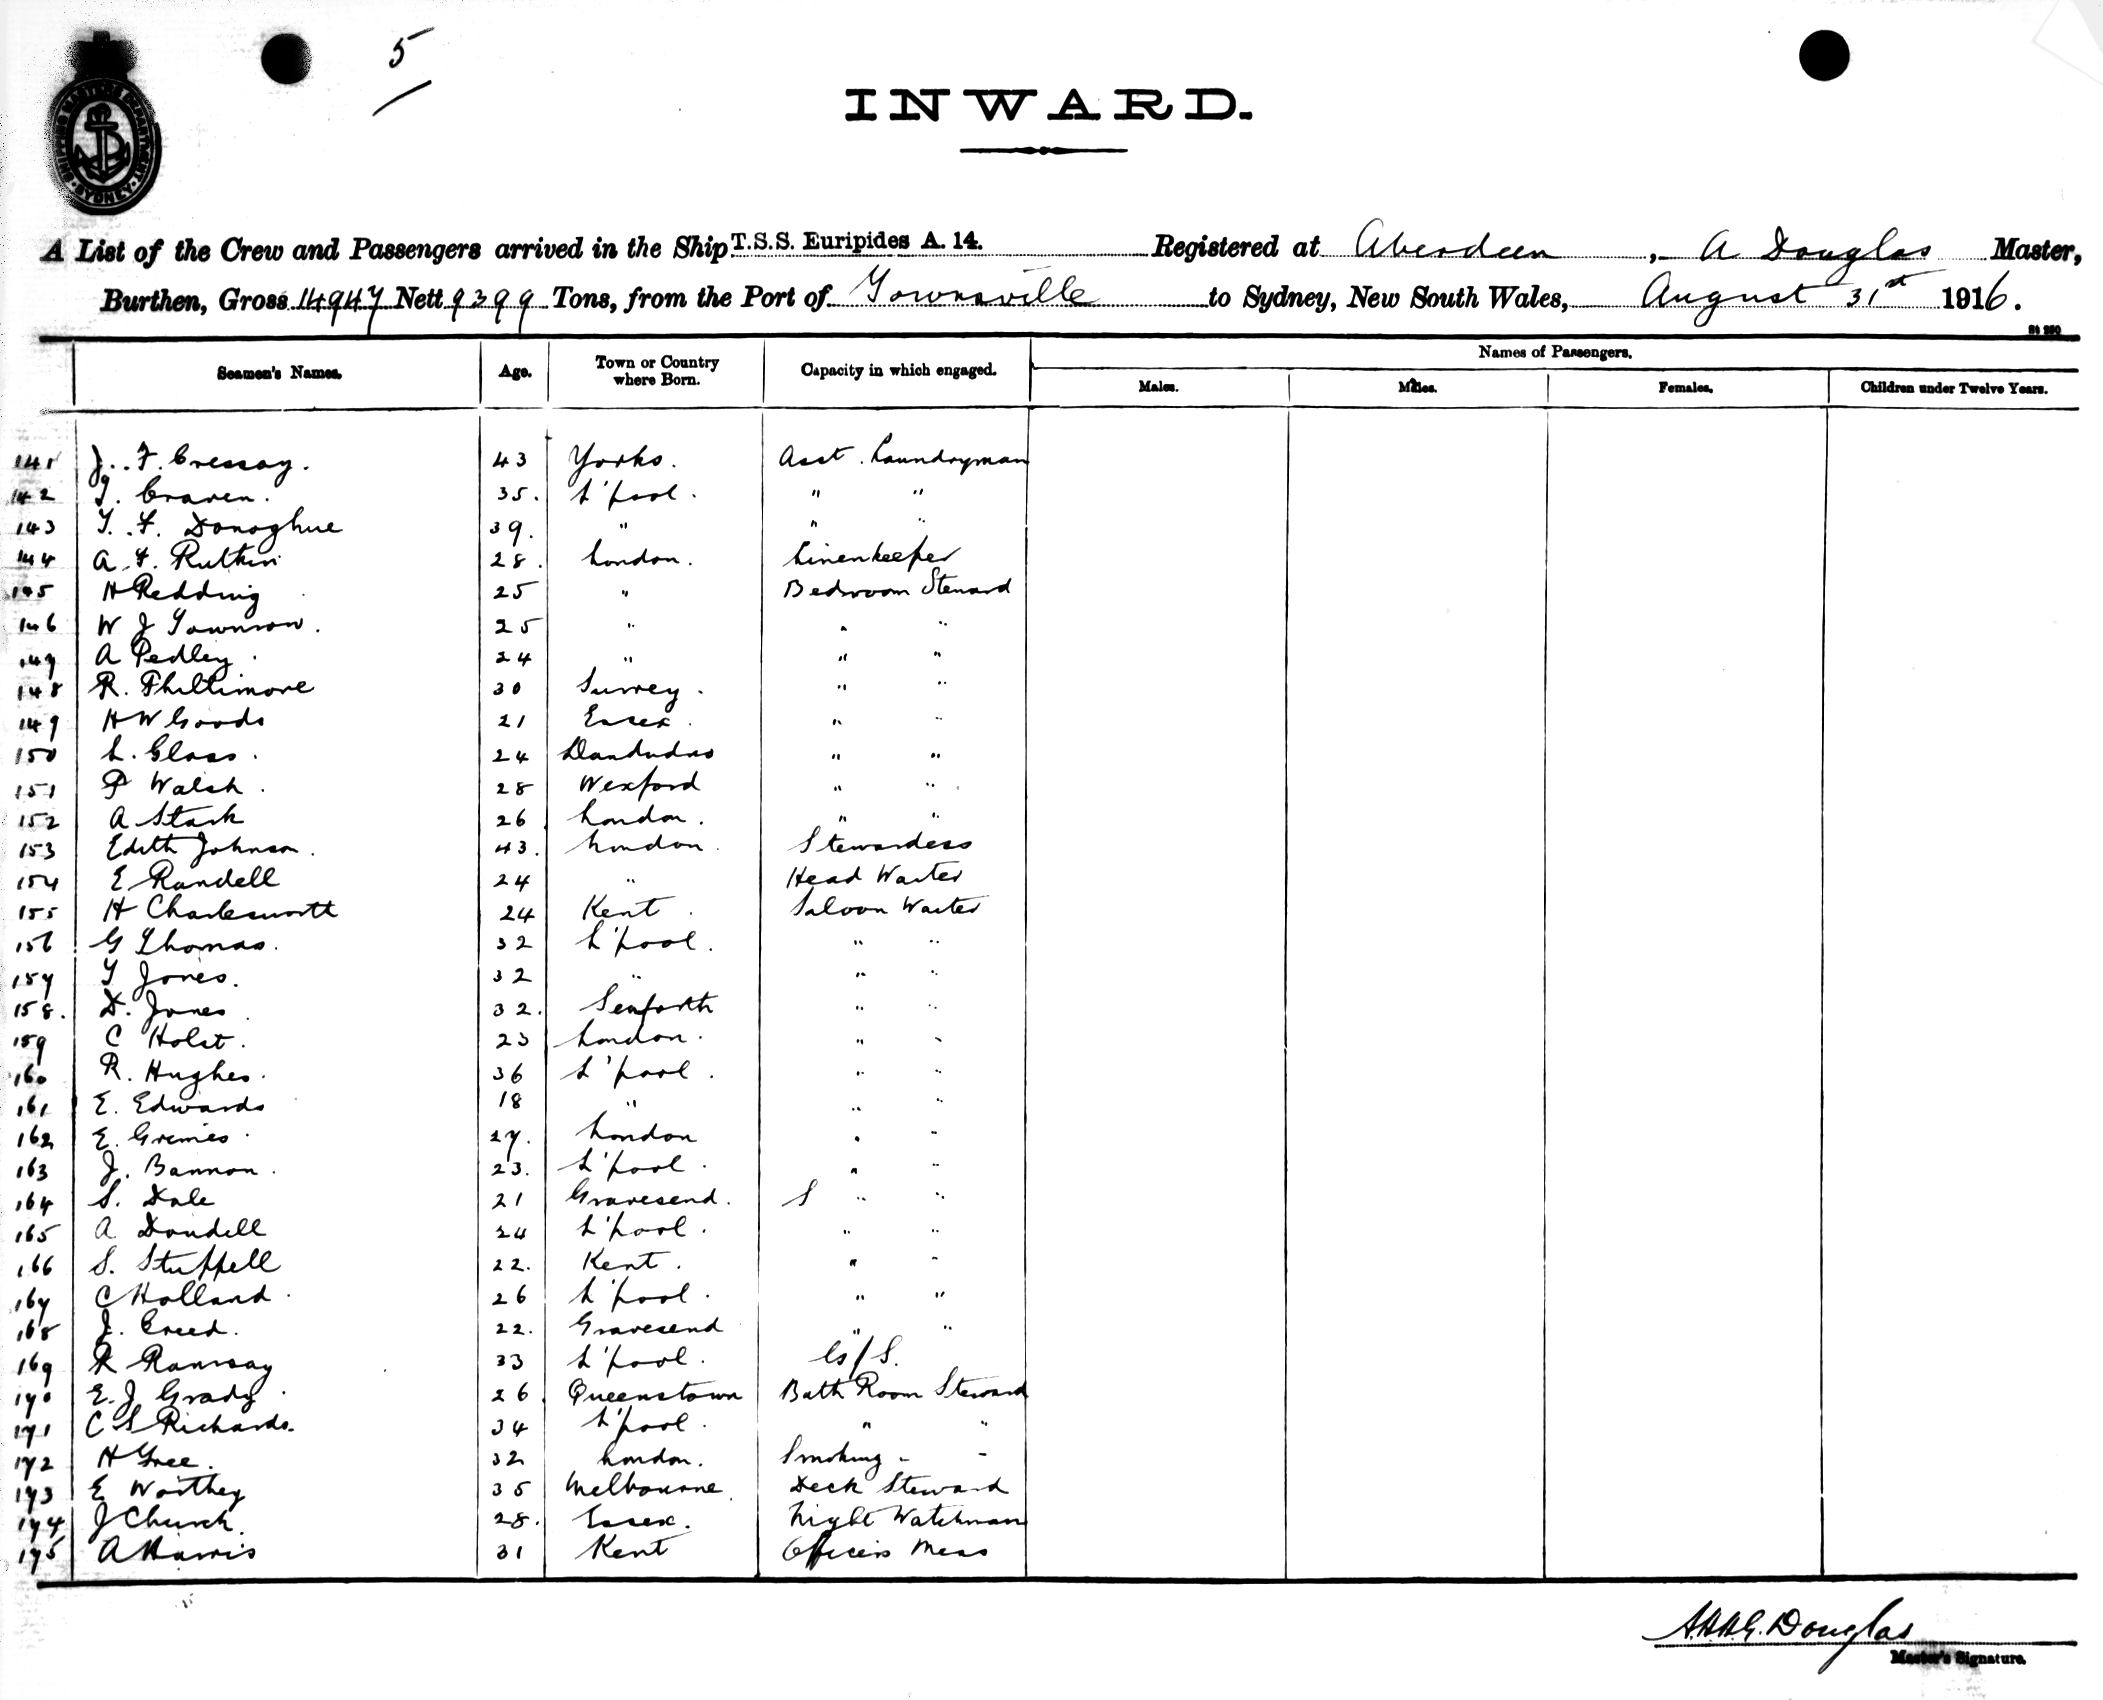 5
SHIPPING MASTER'S DEPARTMENT SYDNEY
INWARD.
A List of the Crew and Passengers arrived in the Ship T.S.S. Euripides A. 14. Registered at Aberdeen, A Douglas Master,
Burthen, Gross 14947 Nett 9399 Tons, from the Port of Townsville to Sydney, New South Wales, August 31st 1916.
St 290
Seamen's Names. Age. Town or Country where Born. Capacity in which engaged. Names of Passengers.
Males. Males. Females. Children under Twelve Years.
141 J. F. Cressey. 43 Yorks. Asst. Laundryman
142 T. Craven. 35. L'pool. " "
143 T. F. Donoghue 39. " " "
144 A. F. Rutkin 28. London. Linenkeeper
145 H Redding 25 " Bedroom Steward
146 W J Townrow. 25 " " "
147 A Pedley. 24 " " "
148 R. Phillimore 30 Surrey. " "
149 H W Goods 21 Essex. " "
150 L. Glass. 24 " "
151 P Walsh. 28 Wexford " "
152 A Stark 26 London. " "
153 Edith Johnson. 43. London. Stewardess
154 E Randell 24 " Head Waiter
155 H Charlesworth 24 Kent. Saloon Waiter
156 G Thomas. 32 L'pool. " "
157 T Jones. 32 " " "
158. D. Jones. 32. Seaforth " "
159 C Holst. 23 London. " "
160 R. Hughes. 36 L'pool. " "
161 E. Edwards 18 " " "
162 E. Gremies. 27. London " "
163 J. Bannon. 23. L'pool. " "
164 S. Dale 21 Gravesend. S " "
165 A Dondell 24 L'pool. " "
166 S. Stuppell 22. Kent. " "
167 C Holland. 26 L'pool. " "
168 J. Creed. 22. Gravesend " "
169 R Ramsay 33 L'pool. /S.
170 E. J Grady. 26 Queenstown Bath Room Steward
171 C S Richards. 34 L'pool. " "
172 H Gree. 32 London. Smoking " "
173 E Worthey 35 Melbourne. Deck Steward
174 J Church. 28. Essex. Night Watchman
175 A Harris 31 Kent Officers Mess
A.H.H.G. Douglas
Master's Signature.